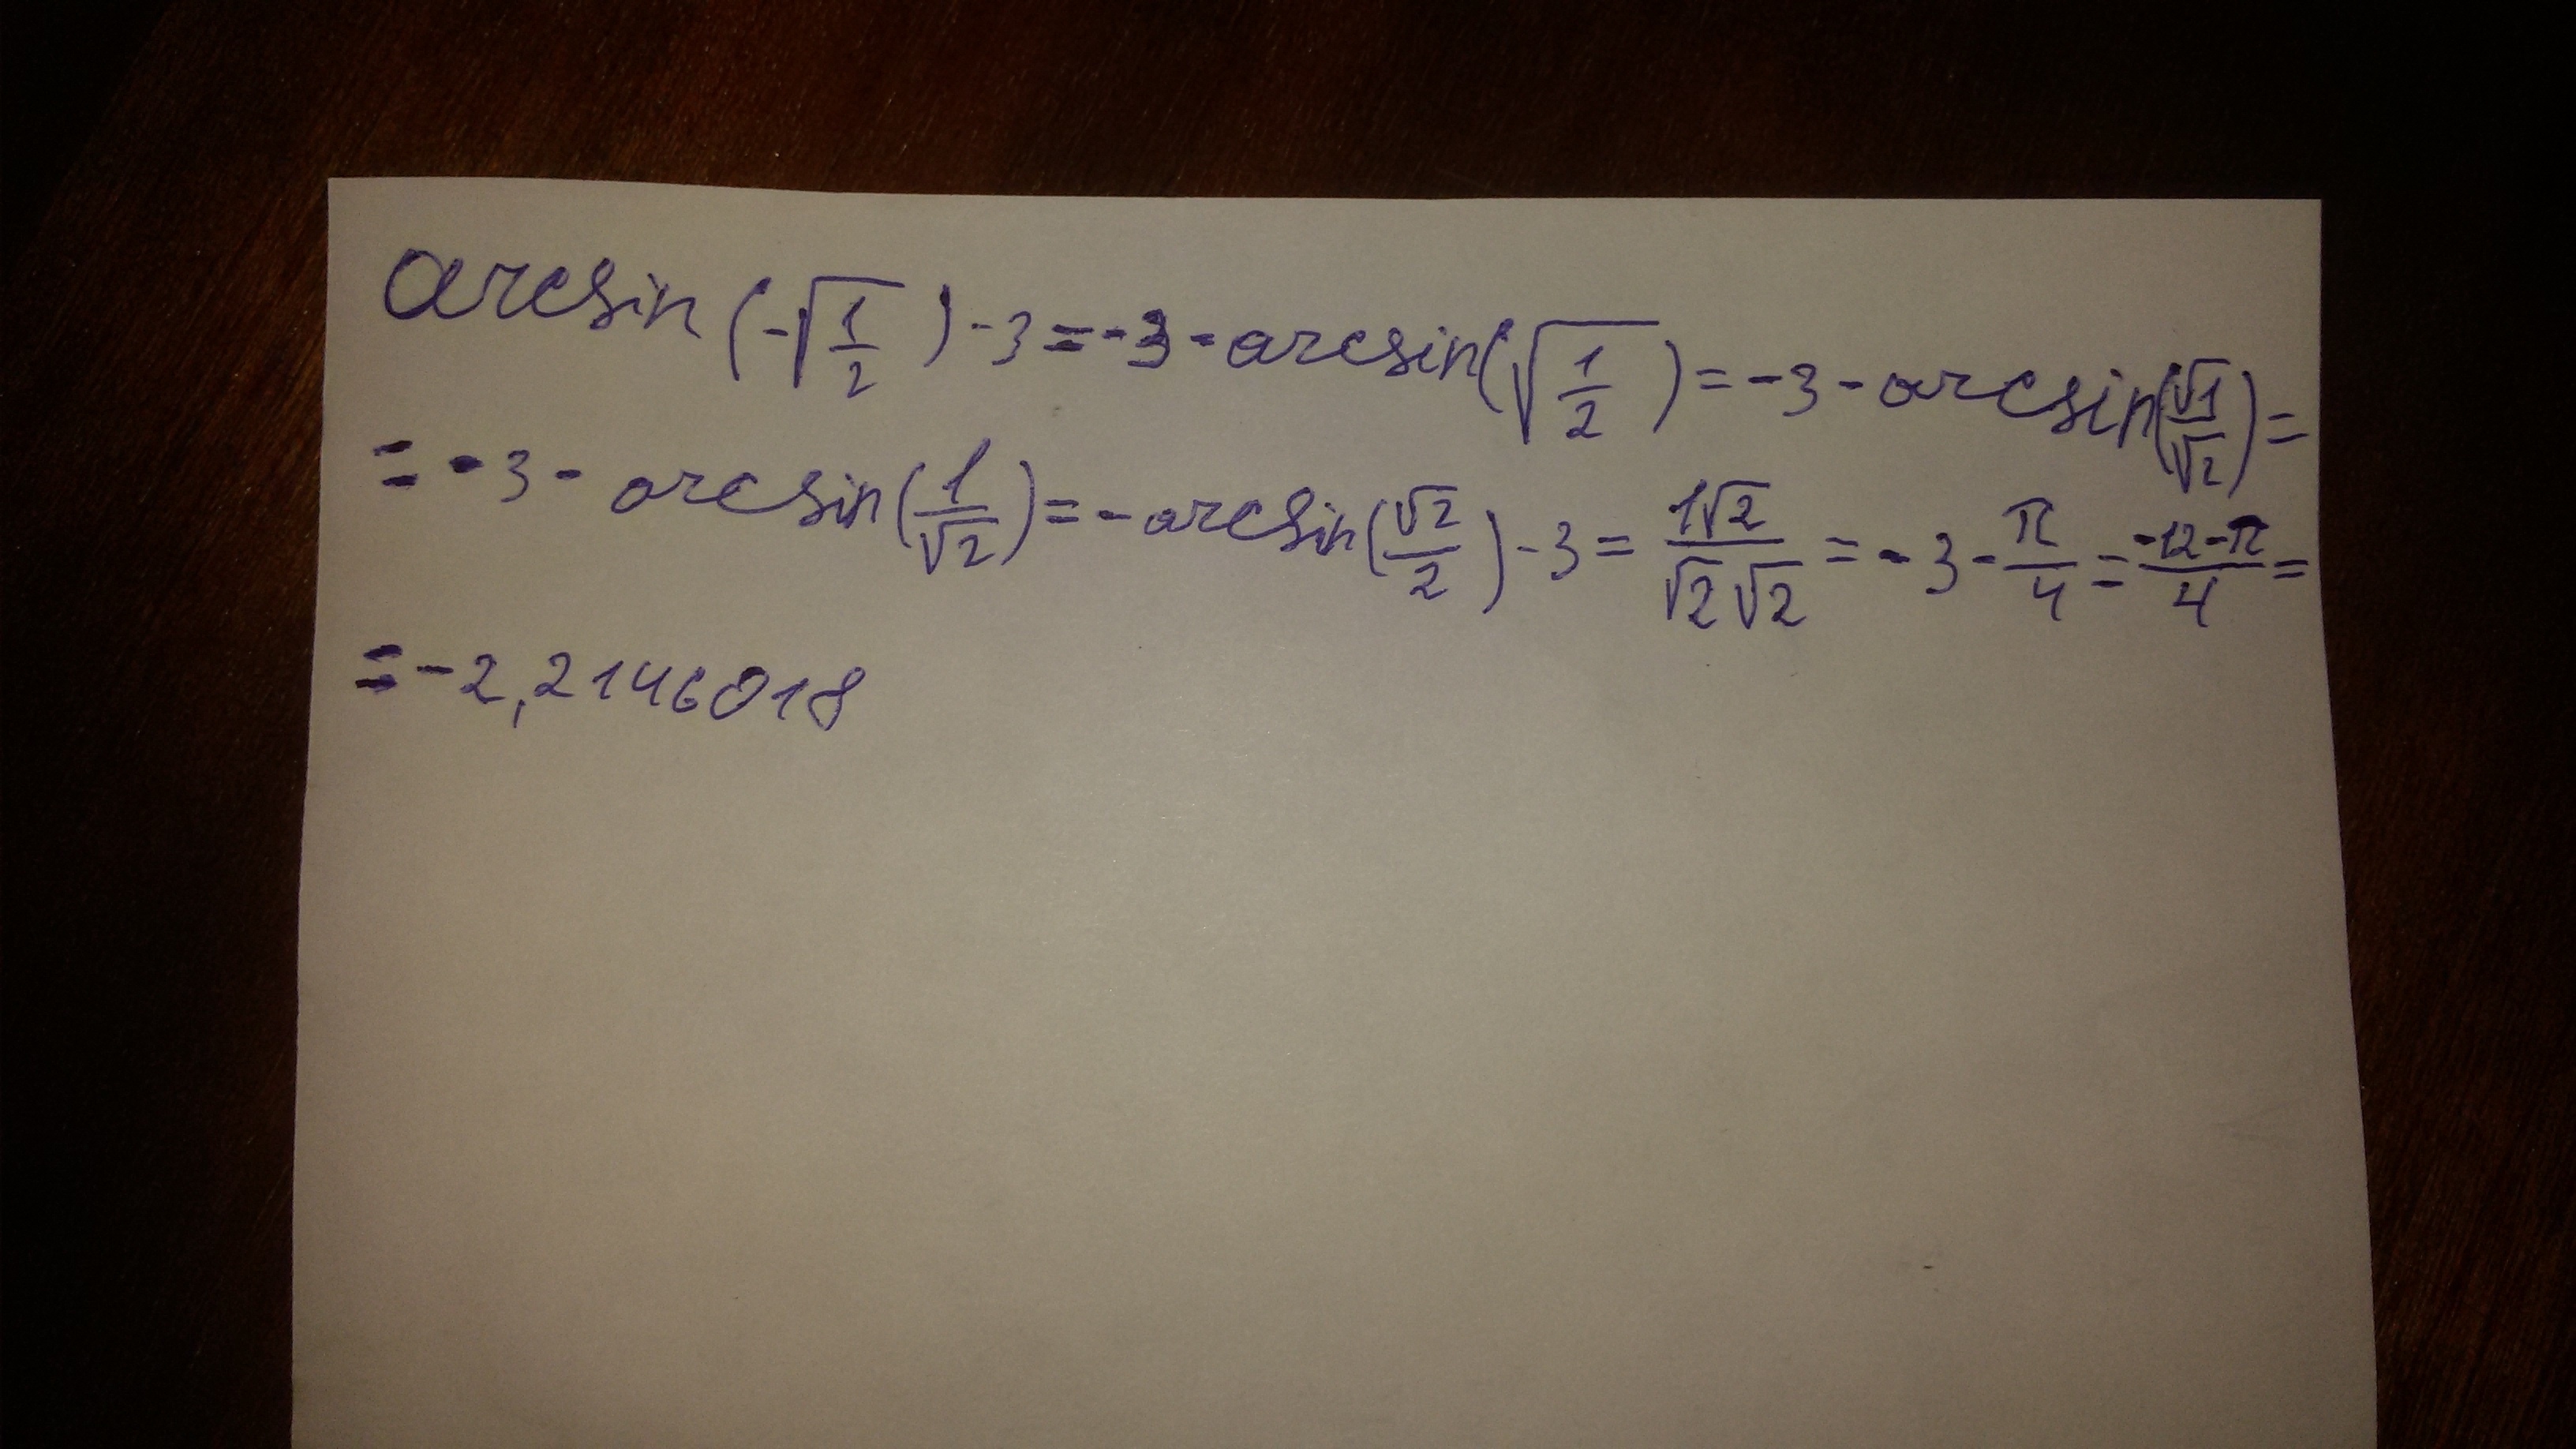 arcsin(-√(1/2))-3=-3-arcsin(√(1/2))=-3-arcsin(√1/√2)=
=-3-arcsin(1/√2)=-arcsin(√2/2)-3=1√2/√2√2=-3-π/4=-12-π/4=
=-2,2146018